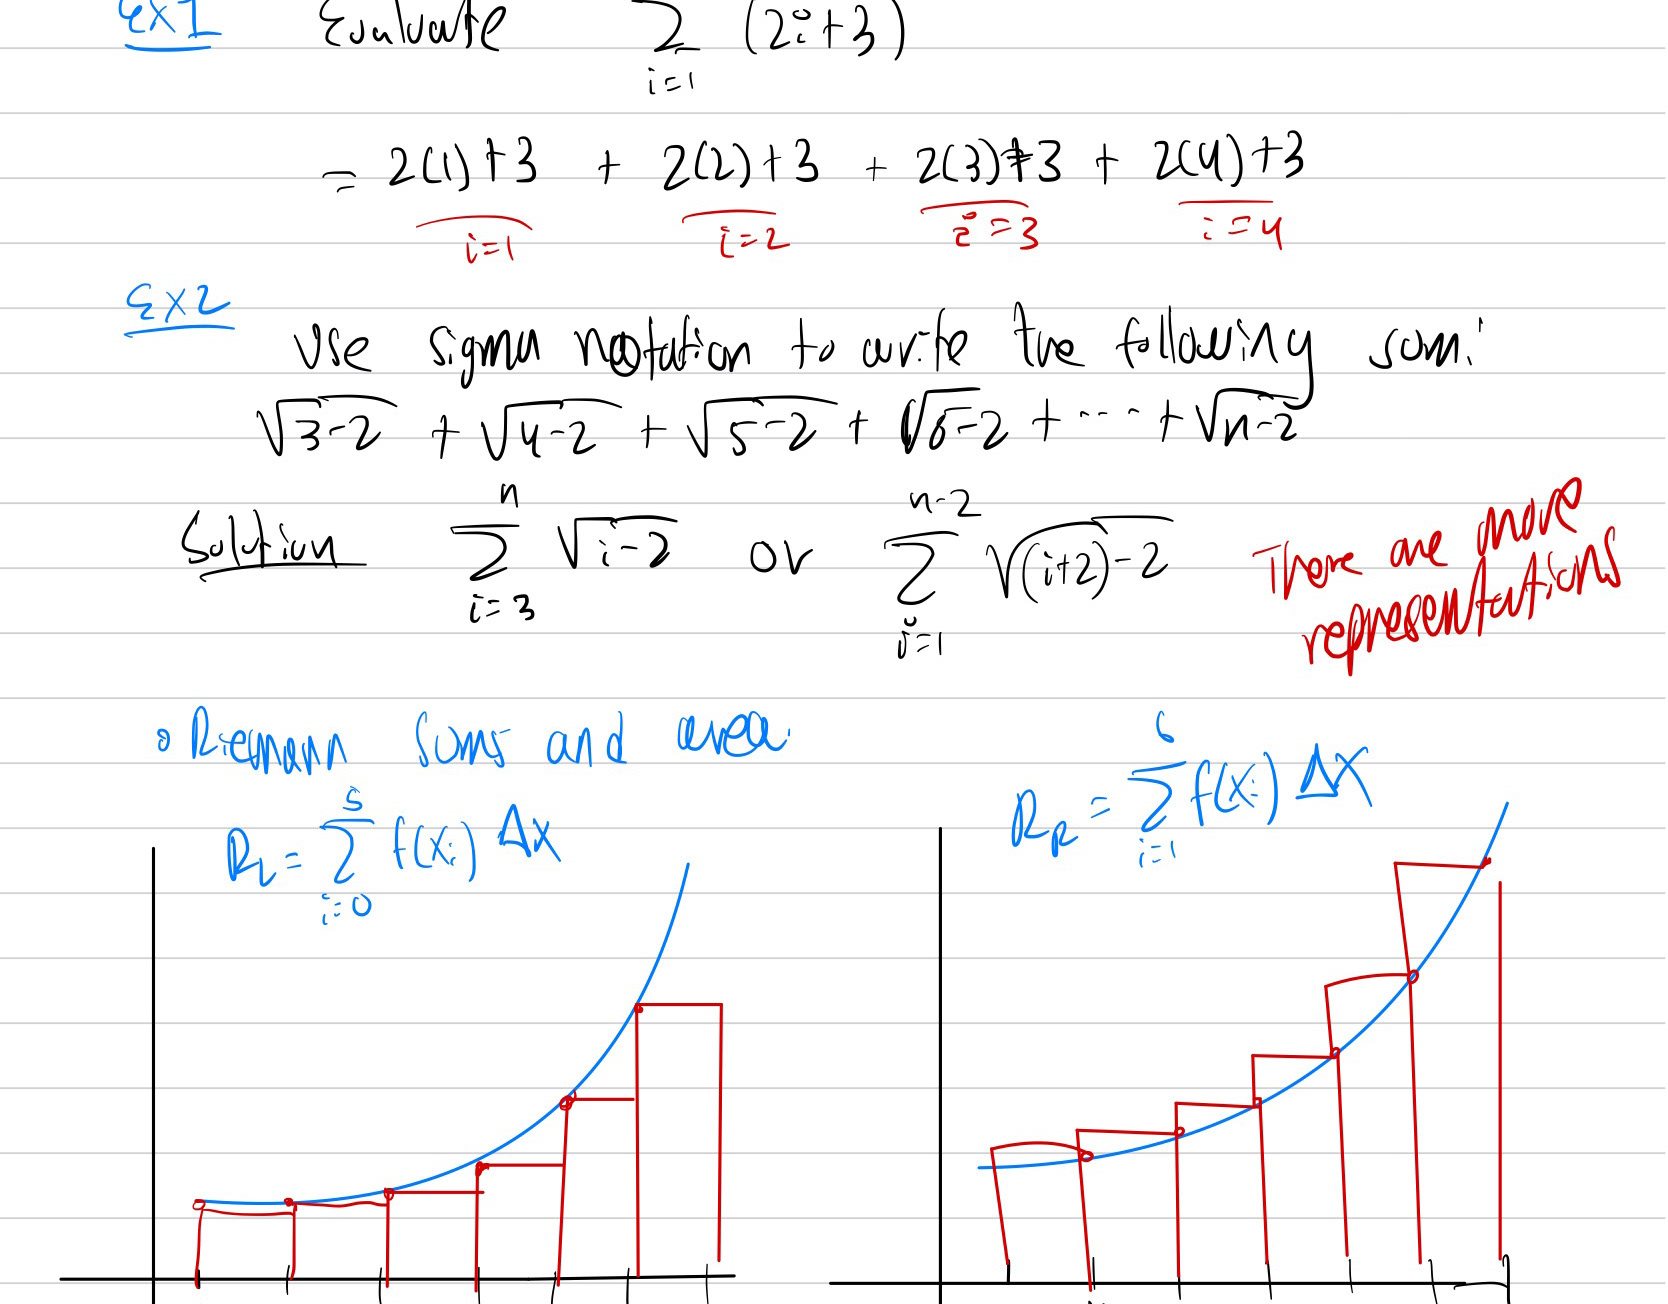 Ex1 Evaluate ∑ (2i+3)
i=1
= 2(1)+3 + 2(2)+3 + 2(3)+3 + 2(4)+3
i=1 i=2 i=3 i=4
Ex2
Use sigma notation to write the following sum:
√3-2 + √4-2 + √5-2 + √6-2 + ···· + √n-2
n n-2
Solution ∑ √i-2 or ∑ √(i+2)-2 There are more
i=3 i=1 representations
∘ Riemann sums and area.
6
R_R = ∑ f(x_i) Δx
i=1
5
R_L = ∑ f(x_i) Δx
i=0